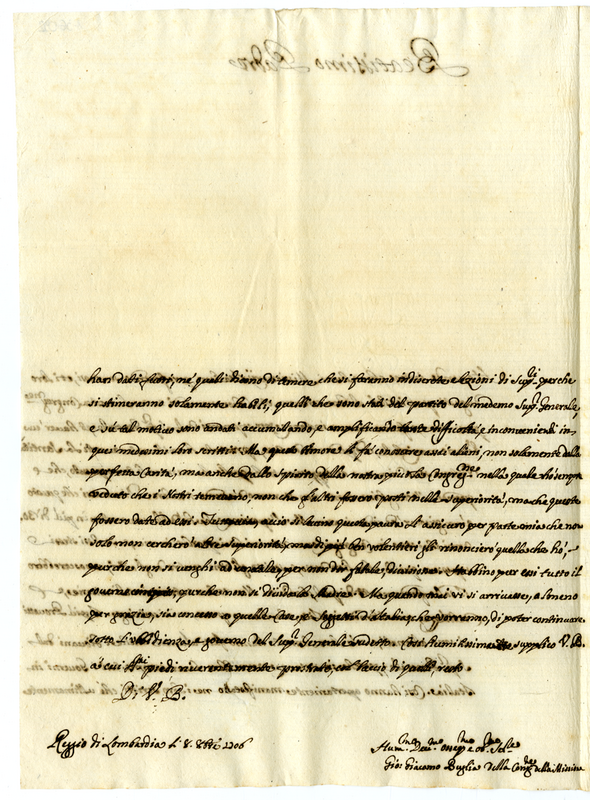 han dati fuori, ne quali diono di temere che si faranno indiscrete elezioni di Sup.ri perche
si stimeranno solamente habili, quelli che sono stati del partito del medemo Sup.r Generale
e su tal motivo sono andati accumulando, e amplificando tante difficoltà, e inconvenienti in
quei medesimi loro scritti. Ma questo timore li fà conoscere assai alieni, non solamente dalla
perfetta Carità, ma anche dallo Spirito della nostra Congreg.ne nella quale hò sempre
veduto che i Nostri temevano, non che gl'altri fossero posti nella superiorità, ma che queste
fossero date ad essi. acciò si levino questa paura li assicuro per parte mia che non
solo non cercherò altre Superiorità, ma di più ben volentieri gli rinoncierò quella che hò,
perche non si venghi ad una fatale divisione. Habbino per essi tutto il
governo purche non si divida la Madre. Ma quando mai vi si arrivasse, almeno
per grazia, sia concesso a quelle Case, e Soggetti d'Italia che vorranno, di poter continuare
sotto l'ubbidienza, e governo del Sup.r Generale sudetto. Così humilissimamente supplico V. B.
ai cui piedi riverentemente prostrato, col bacio di resto
Di V. B.
Reggio di Lombardia li 8. 1706
Hum.mo Dev.mo Osseq.mo e Ob.mo
Gio: Giacomo della Cong.ne della Missione
Beatissimo Padre